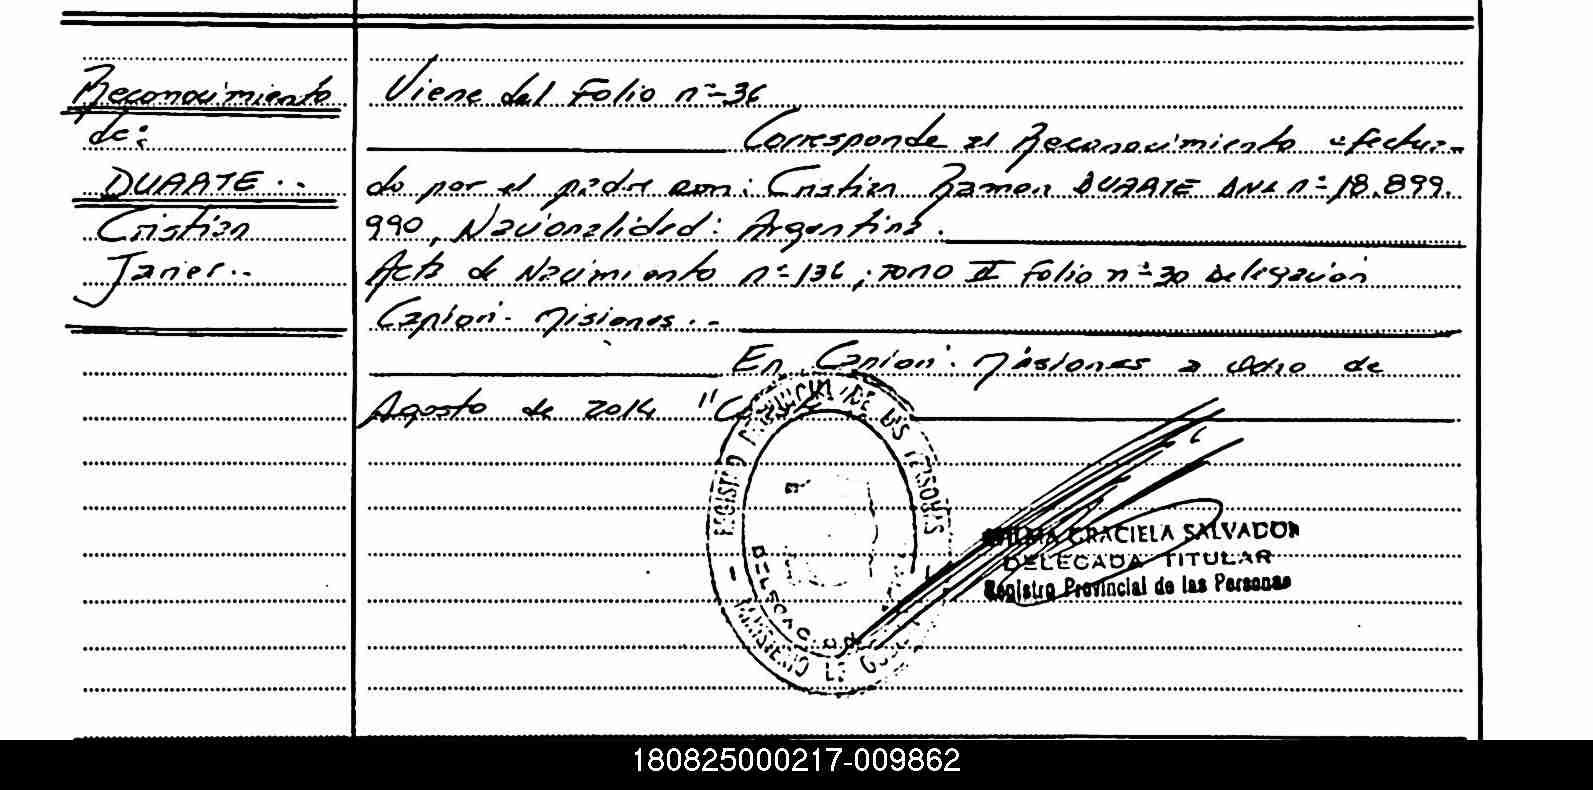 Reconocimiento
de:
DUARTE..
Cristian
Javier..
Viene del Folio nº-36
Corresponde al Reconocimiento efectua-
do por el padre con: Cristian Ramon DUARTE DNI nº-18.899.
990, Nacionalidad: Argentina.
Acta de Nacimiento nº-136, TOMO II Folio nº-30 Delegación
Capioví- Misiones..-
En Capioví. Misiones a ocho de
Agosto de 2014
REGISTRO PROVINCIAL DE LAS PERSONAS
DELEGACION
GRACIELA SALVADOR
DELEGADA TITULAR
Registro Provincial de las Personas
180825000217-009862